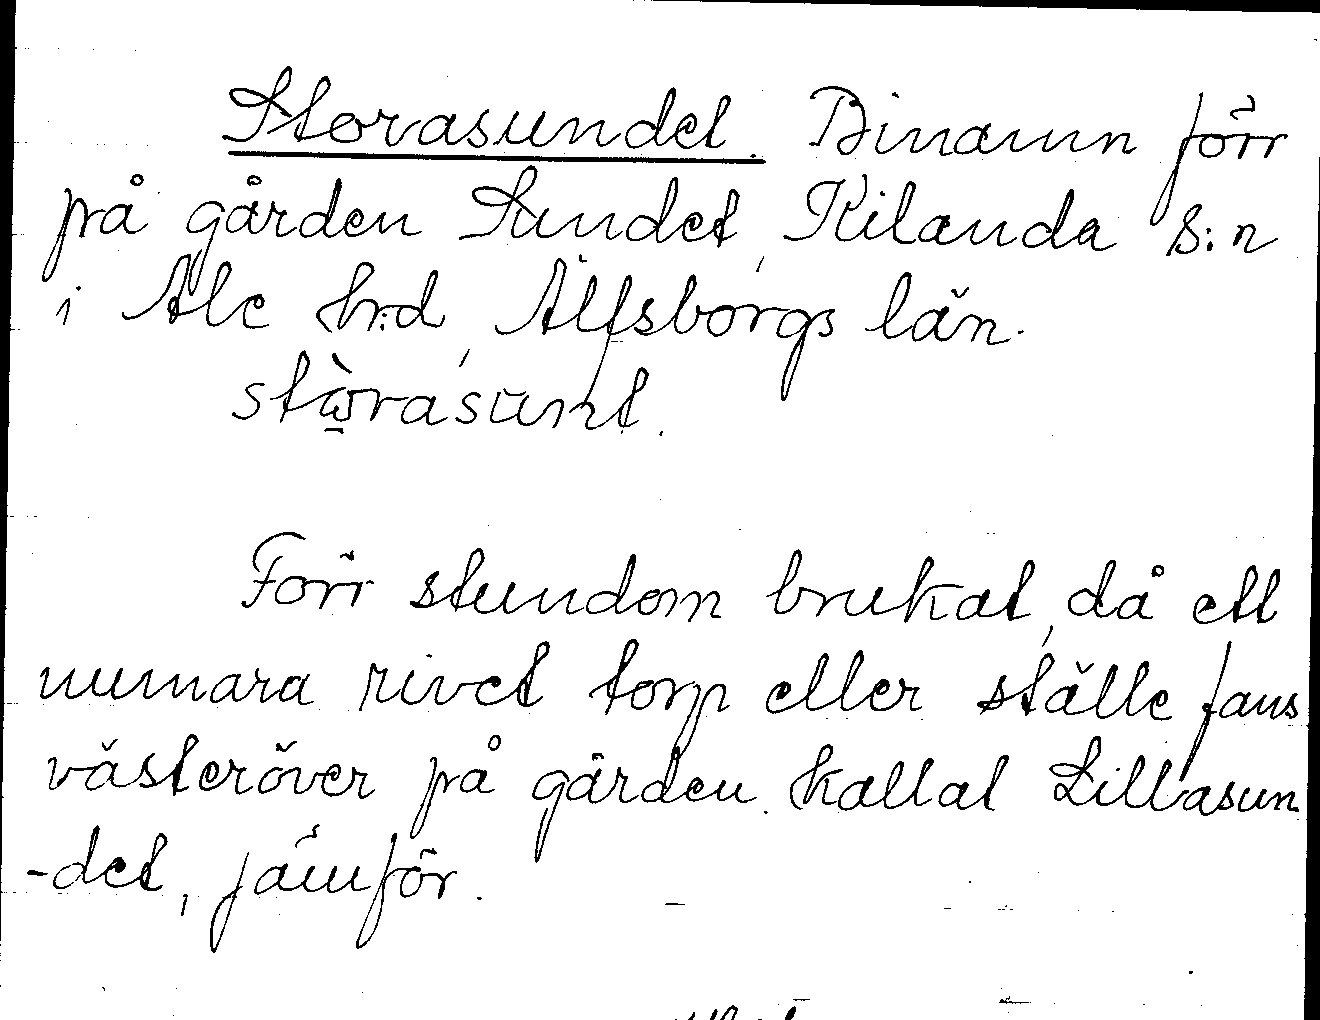 Storasundet. Binamn förr
på gården Sundet, Kilanda s:n
i Ale h:d, Älfsborgs län.
Förr stundom brukat, då ett
numara rivet torp eller ställe fans
västeröver på gården kallat Lillasun
-det, jämför.